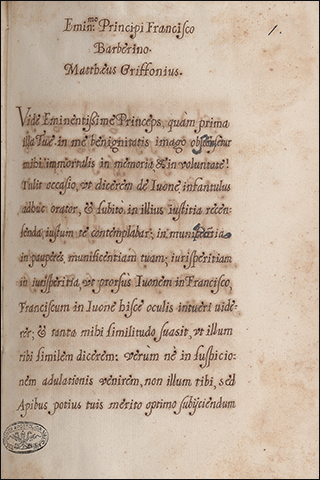 Emin:mo Principi Francisco
Barberino.
Matthæus Griffonius.
1.
Vide Eminentissime Princeps, quam prima
illa Tuæ in me benignitatis imago
mihi immortalis in memoria & in voluntate!
Tulit occasio, vt dicerem de Iuone infantulus
adhuc orator, & subitò in illius iustitia recen-
senda iustum te contemplabar; in munificentia
in pauperes, munificentiam tuam; iurisperitiam
in iurisperitia, et prorsus Iuonem in Francisco,
Franciscum in Iuone hisce oculis intueri uide-
rer; & tanta mihi similitudo suasit, vt illum
tibi similem dicerem: verùm nè in suspicio-
nem adulationis venirem, non illum tibi, sed
Apibus potius tuis merito optimo subijciendum